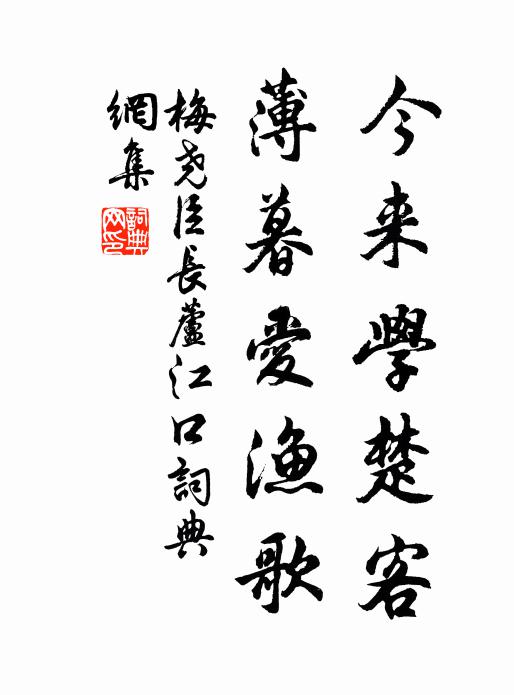 今来學楚客
薄暮愛漁歌
梅尧臣長蘆江口詞典
網集
詞典
网印